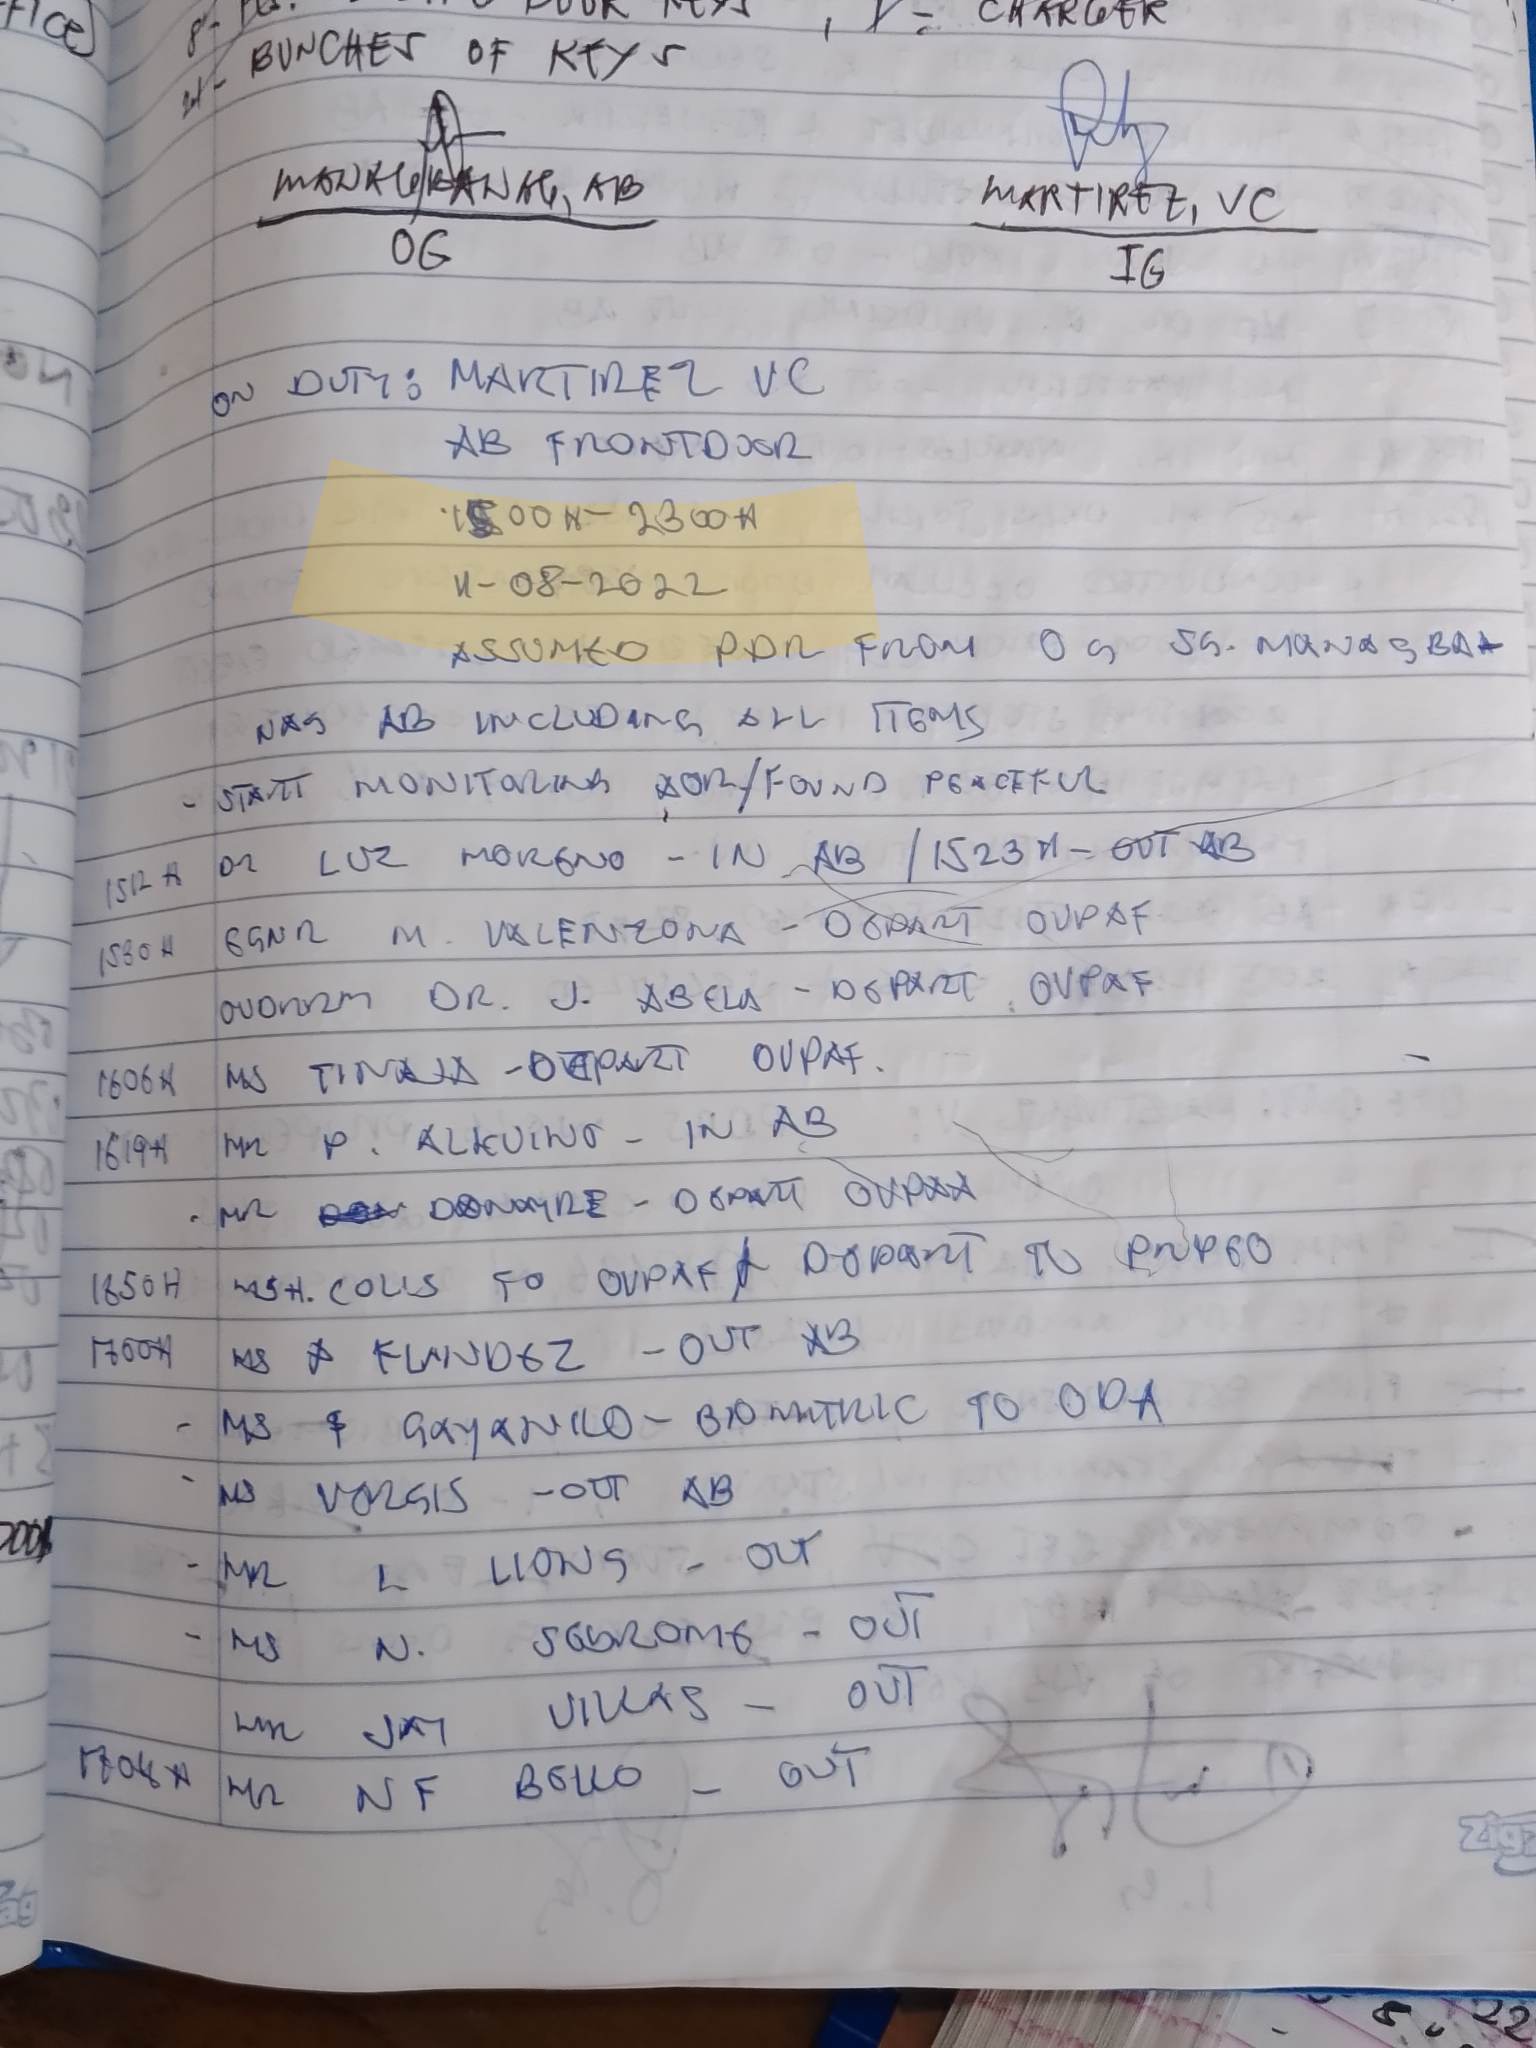 DOOR KEYS , 1 = CHARGER
BUNCHES OF KEYS
MANAGBANAG, AB
MARTIREZ, VC
OG
IG
ON DUTY: MARTIREZ VC
AB FRONTDOOR
1500H - 2300H
11-08-2022
ASSUMED PDR FROM OG SG. MANAGBA
NAG AB INCLUDING ALL ITEMS
- START MONITORING AOR/FOUND PEACEFUL
1512H DR LUZ MORENO - IN AB / 1523H - OUT AB
1530H ENGR M. VALENZONA - DEPART OVPAF
DR. J. ABELA - DEPART OVPAF
1606H MS TINAJA - DEPART OVPAF.
1619H MR P. ALKUINO - IN AB
- MR DONAYRE - DEPART OVPAA
1650H MS H. COLIS TO OVPAF / DEPART TO
1700H MS A FLANDEZ - OUT AB
- MS F GAYANILO - BIOMETRIC TO ODA
- MS VERGIS - OUT AB
- MR L LIONG - OUT
- MS N. - OUT
MR JAY VILLAS - OUT
1704H MR NF BELLO - OUT